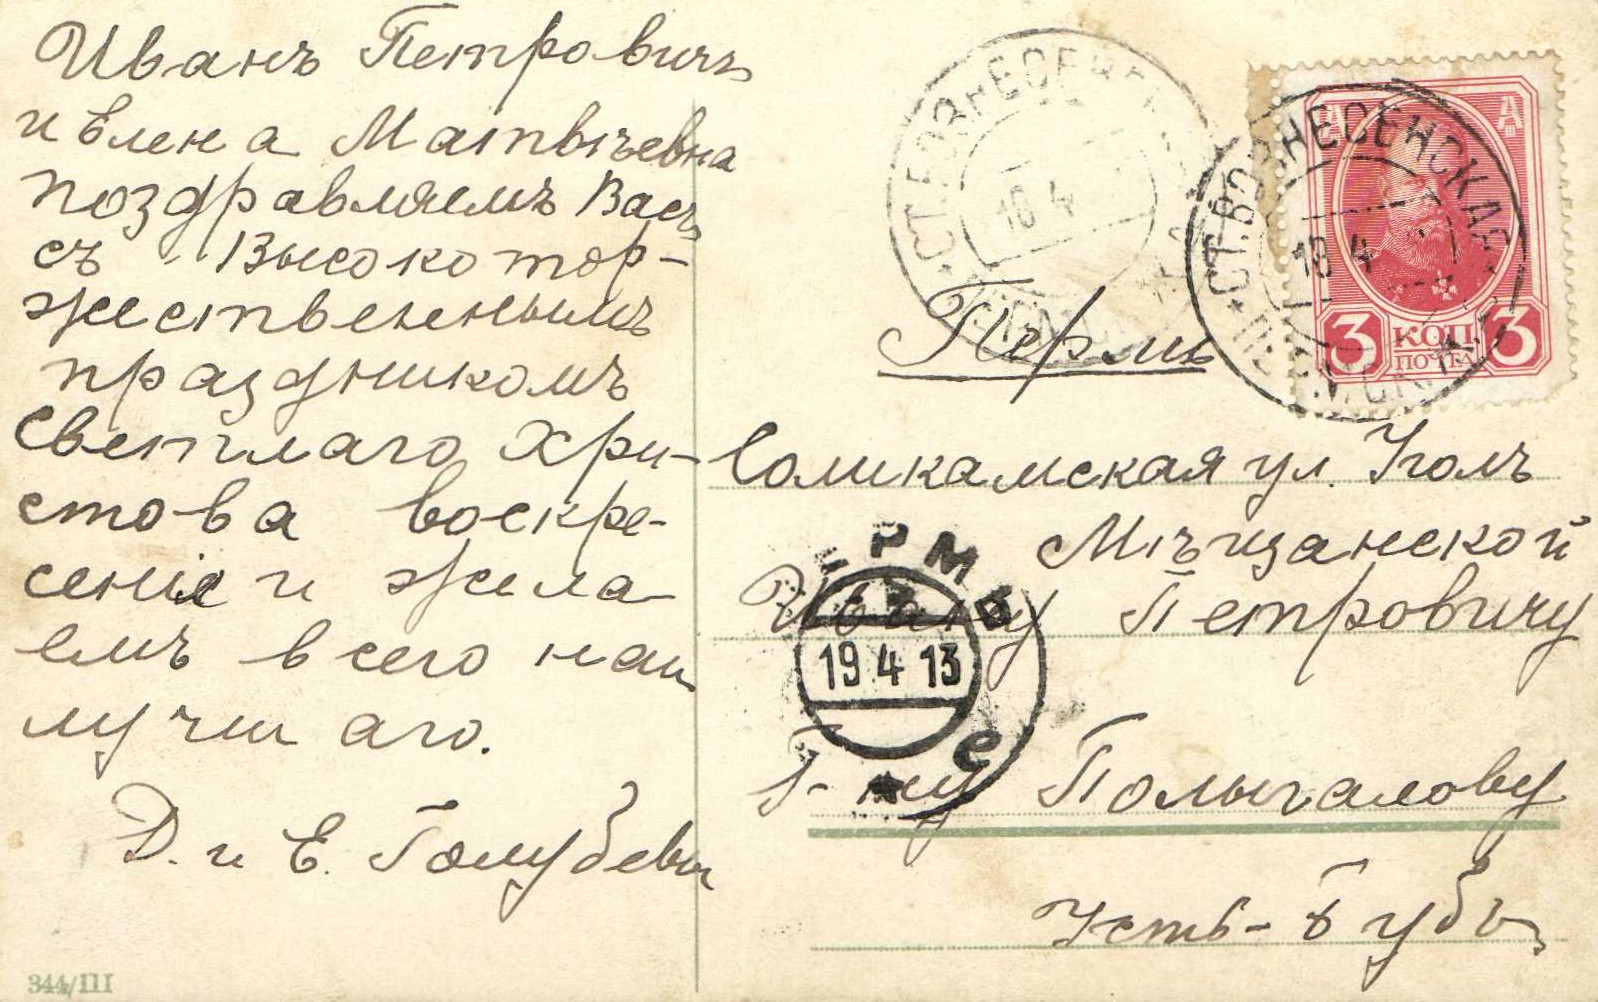 Иванъ Петровичъ
и Елена Матвѣевна
поздравляемъ Васъ
съ Высокотор-
жественнымъ
праздникомъ
Светлаго Хри-
стова воскре-
сенія и жела-
емъ всего наи
лучшаго.
Д. и Е. Голубевы
344/III
СТ. ВОЗНЕСЕНСКАЯ
18 4
СТ. ВОЗНЕСЕНСКАЯ
18 4
ПЕРМСК.
3 КОП 3
ПОЧТА
Пермь
Соликамская ул. Уголъ
Мѣщанской
Ивану Петровичу
Г-ну Полыгалову
Усть-Бубы
ПЕРМЬ
19 4 13
е